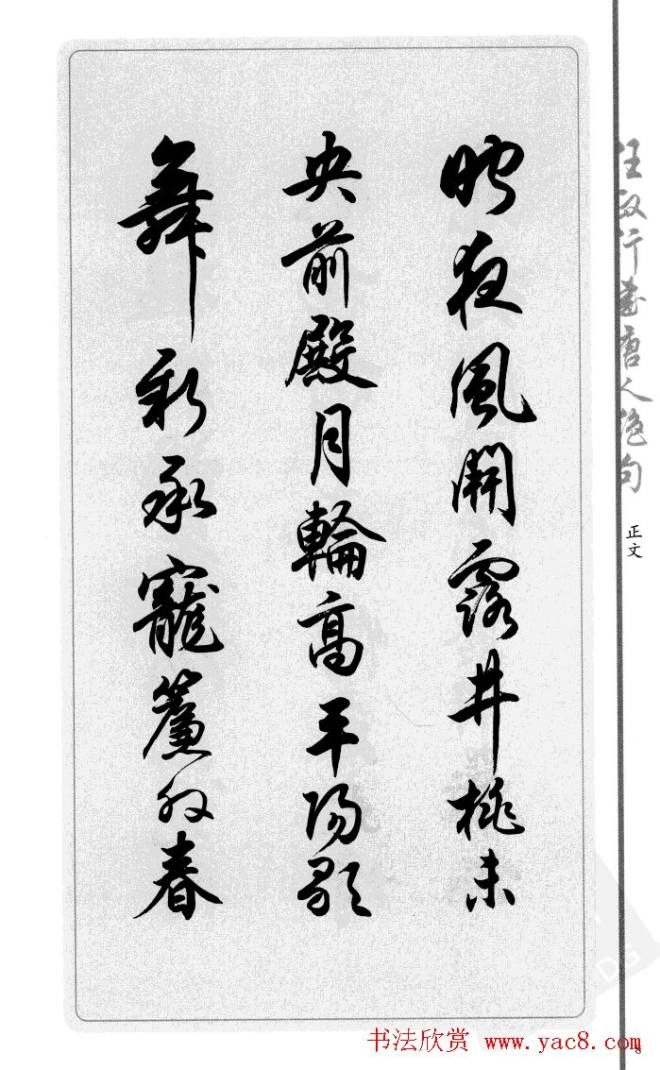 昨夜風開露井桃未
央前殿月輪高平陽歌
舞新承寵簾外春
任政行書唐人絶句
正文
书法欣赏 www.yac8.com
DG
8